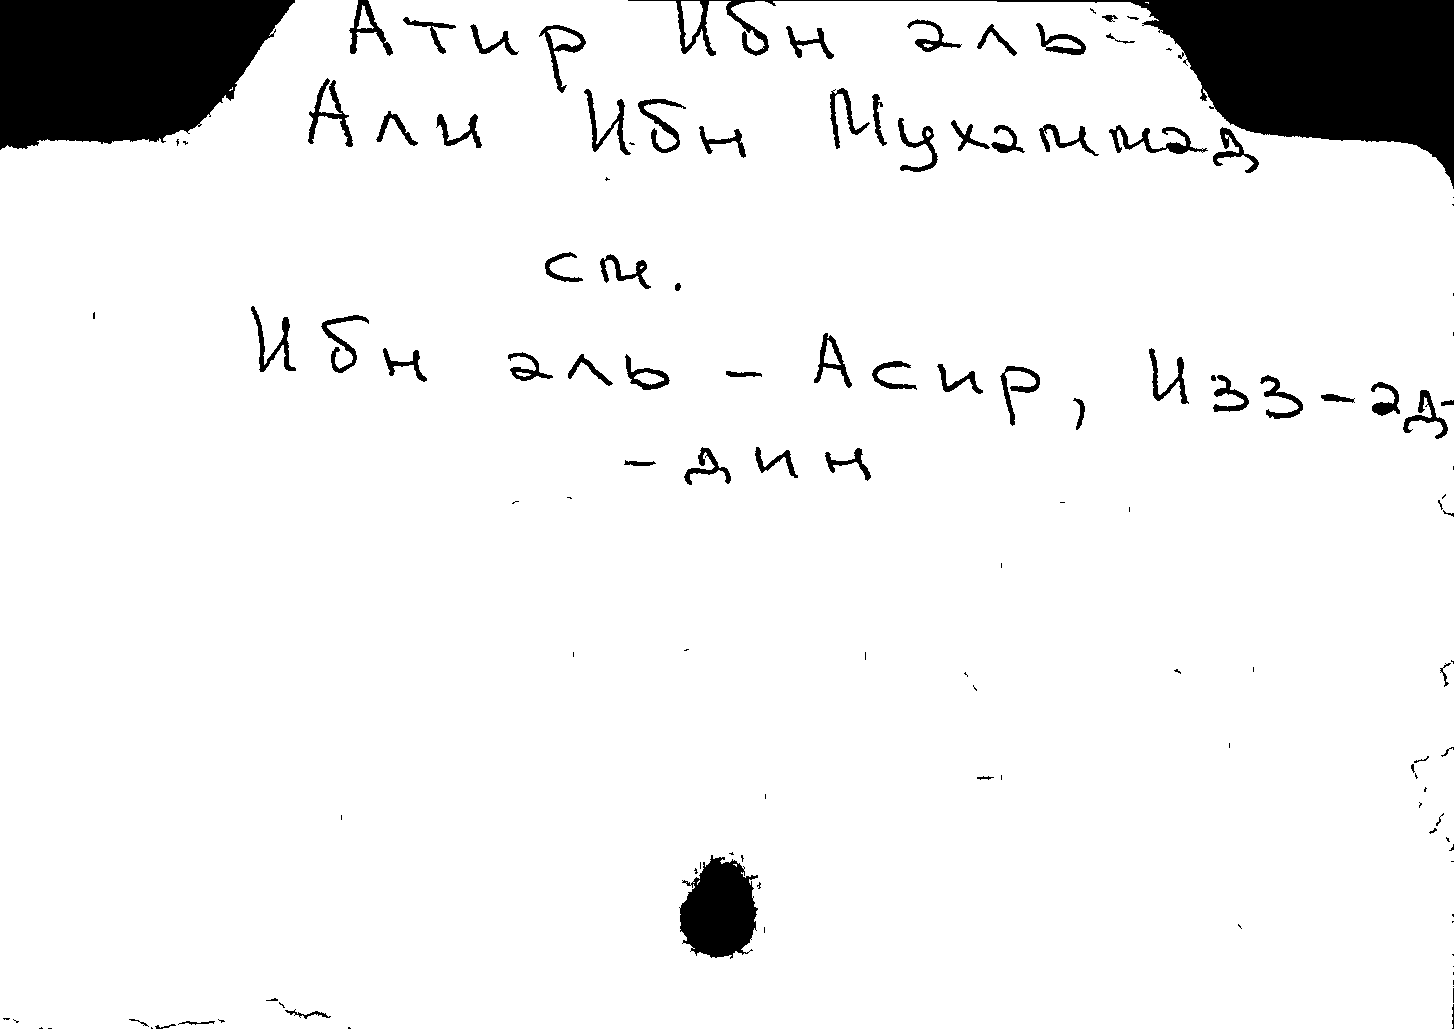 Атир Ибн аль-
Али Ибн Мухаммад
см.
Ибн аль-Асир, Изз-ад-
-дин